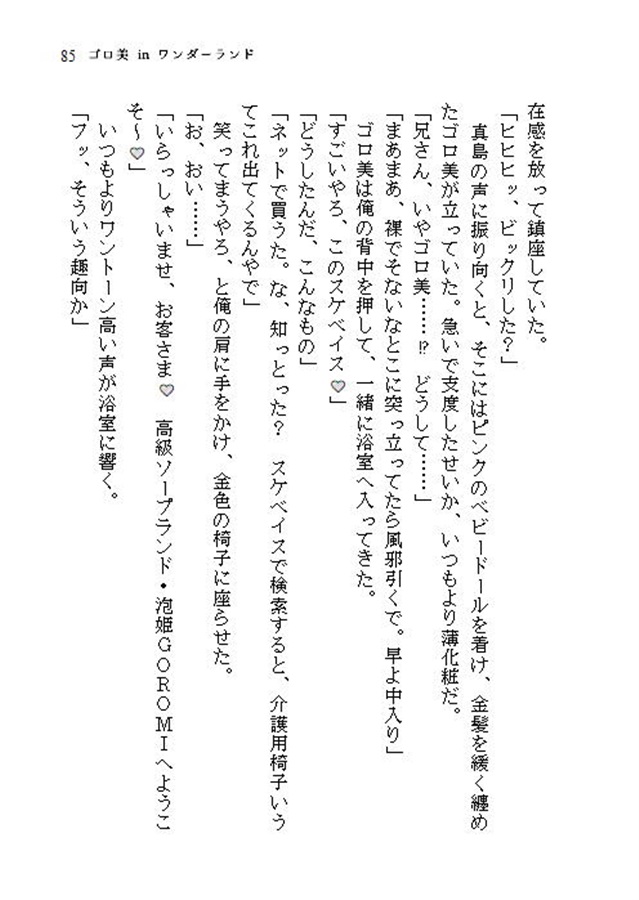 85 ゴロ美 in ワンダーランド
在感を放って鎮座していた。
「ヒヒヒッ、ビックリした？」
　真島の声に振り向くと、そこにはピンクのベビードールを着け、金髪を緩く纏め
たゴロ美が立っていた。急いで支度したせいか、いつもより薄化粧だ。
「兄さん、いやゴロ美……⁉　どうして……」
「まあまあ、裸でそないなとこに突っ立ってたら風邪引くで。早よ中入り」
　ゴロ美は俺の背中を押して、一緒に浴室へ入ってきた。
「すごいやろ、このスケベイス♥」
「どうしたんだ、こんなもの」
「ネットで買うた。な、知っとった？　スケベイスで検索すると、介護用椅子いう
てこれ出てくるんやで」
　笑ってまうやろ、と俺の肩に手をかけ、金色の椅子に座らせた。
「お、おい……」
「いらっしゃいませ、お客さま♥　高級ソープランド・泡姫ＧＯＲＯＭＩへようこ
そ〜♥」
　いつもよりワントーン高い声が浴室に響く。
「フッ、そういう趣向か」